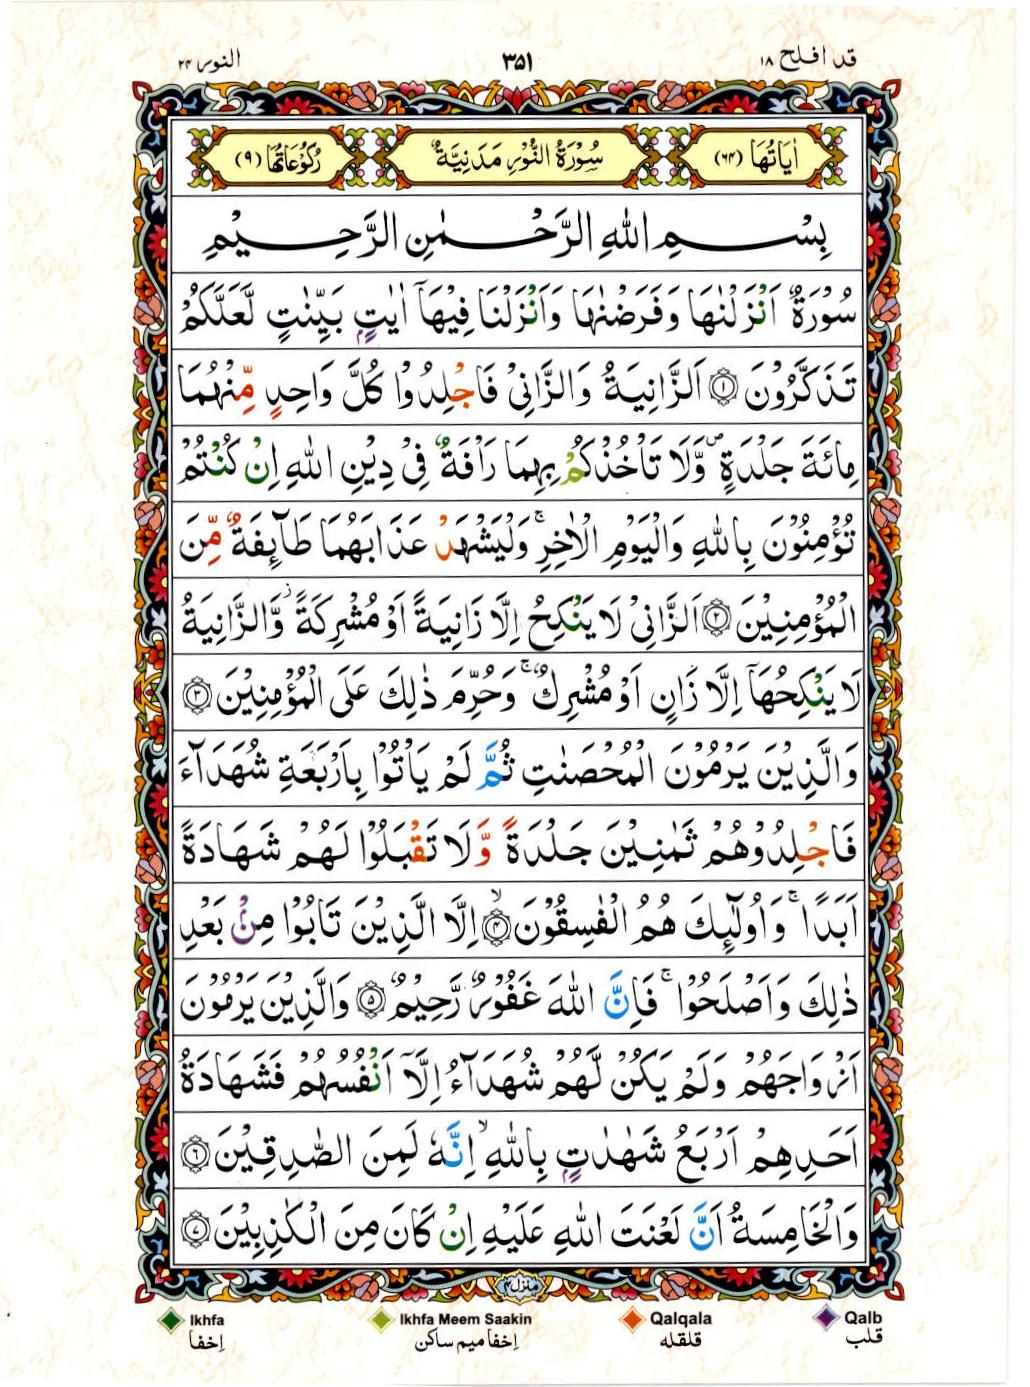 قد افلح ۱۸
۳۵۱
النور ۲۴
اٰیَاتُهَا (۶۴)
سُوْرَةُ النُّوْرِ مَدَنِیَّةٌ
رُكُوْعَاتُهَا (۹)
بِسْمِ اللهِ الرَّحْمٰنِ الرَّحِیْمِ
سُوْرَةٌ اَنْزَلْنٰهَا وَفَرَضْنٰهَا وَاَنْزَلْنَا فِیْهَاۤ اٰیٰتٍۭ بَیِّنٰتٍ لَّعَلَّكُمْ
تَذَكَّرُوْنَ ۝۱ اَلزَّانِیَةُ وَالزَّانِیْ فَاجْلِدُوْا كُلَّ وَاحِدٍ مِّنْهُمَا
مِائَةَ جَلْدَةٍ ۪ وَّلَا تَاْخُذْكُمْ بِهِمَا رَاْفَةٌ فِیْ دِیْنِ اللهِ اِنْ كُنْتُمْ
تُؤْمِنُوْنَ بِاللهِ وَالْیَوْمِ الْاٰخِرِ ۚ وَلْیَشْهَدْ عَذَابَهُمَا طَآئِفَةٌ مِّنَ
الْمُؤْمِنِیْنَ ۝۲ اَلزَّانِیْ لَا یَنْكِحُ اِلَّا زَانِیَةً اَوْ مُشْرِكَةً ؗ وَّالزَّانِیَةُ
لَا یَنْكِحُهَاۤ اِلَّا زَانٍ اَوْ مُشْرِكٌ ۚ وَحُرِّمَ ذٰلِكَ عَلَی الْمُؤْمِنِیْنَ ۝۳
وَالَّذِیْنَ یَرْمُوْنَ الْمُحْصَنٰتِ ثُمَّ لَمْ یَاْتُوْا بِاَرْبَعَةِ شُهَدَآءَ
فَاجْلِدُوْهُمْ ثَمٰنِیْنَ جَلْدَةً وَّلَا تَقْبَلُوْا لَهُمْ شَهَادَةً
اَبَدًا ۚ وَاُولٰٓئِكَ هُمُ الْفٰسِقُوْنَ ۝۴ۙ اِلَّا الَّذِیْنَ تَابُوْا مِنْۢ بَعْدِ
ذٰلِكَ وَاَصْلَحُوْا ۚ فَاِنَّ اللهَ غَفُوْرٌ رَّحِیْمٌ ۝۵ وَالَّذِیْنَ یَرْمُوْنَ
اَزْوَاجَهُمْ وَلَمْ یَكُنْ لَّهُمْ شُهَدَآءُ اِلَّاۤ اَنْفُسُهُمْ فَشَهَادَةُ
اَحَدِهِمْ اَرْبَعُ شَهٰدٰتٍۭ بِاللهِ ۙ اِنَّهٗ لَمِنَ الصّٰدِقِیْنَ ۝۶
وَالْخَامِسَةُ اَنَّ لَعْنَتَ اللهِ عَلَیْهِ اِنْ كَانَ مِنَ الْكٰذِبِیْنَ ۝۷
منزل ۴
Ikhfa
Ikhfa Meem Saakin
Qalqala
Qalb
اِخفا
اِخفا میم ساکن
قلقله
قلب